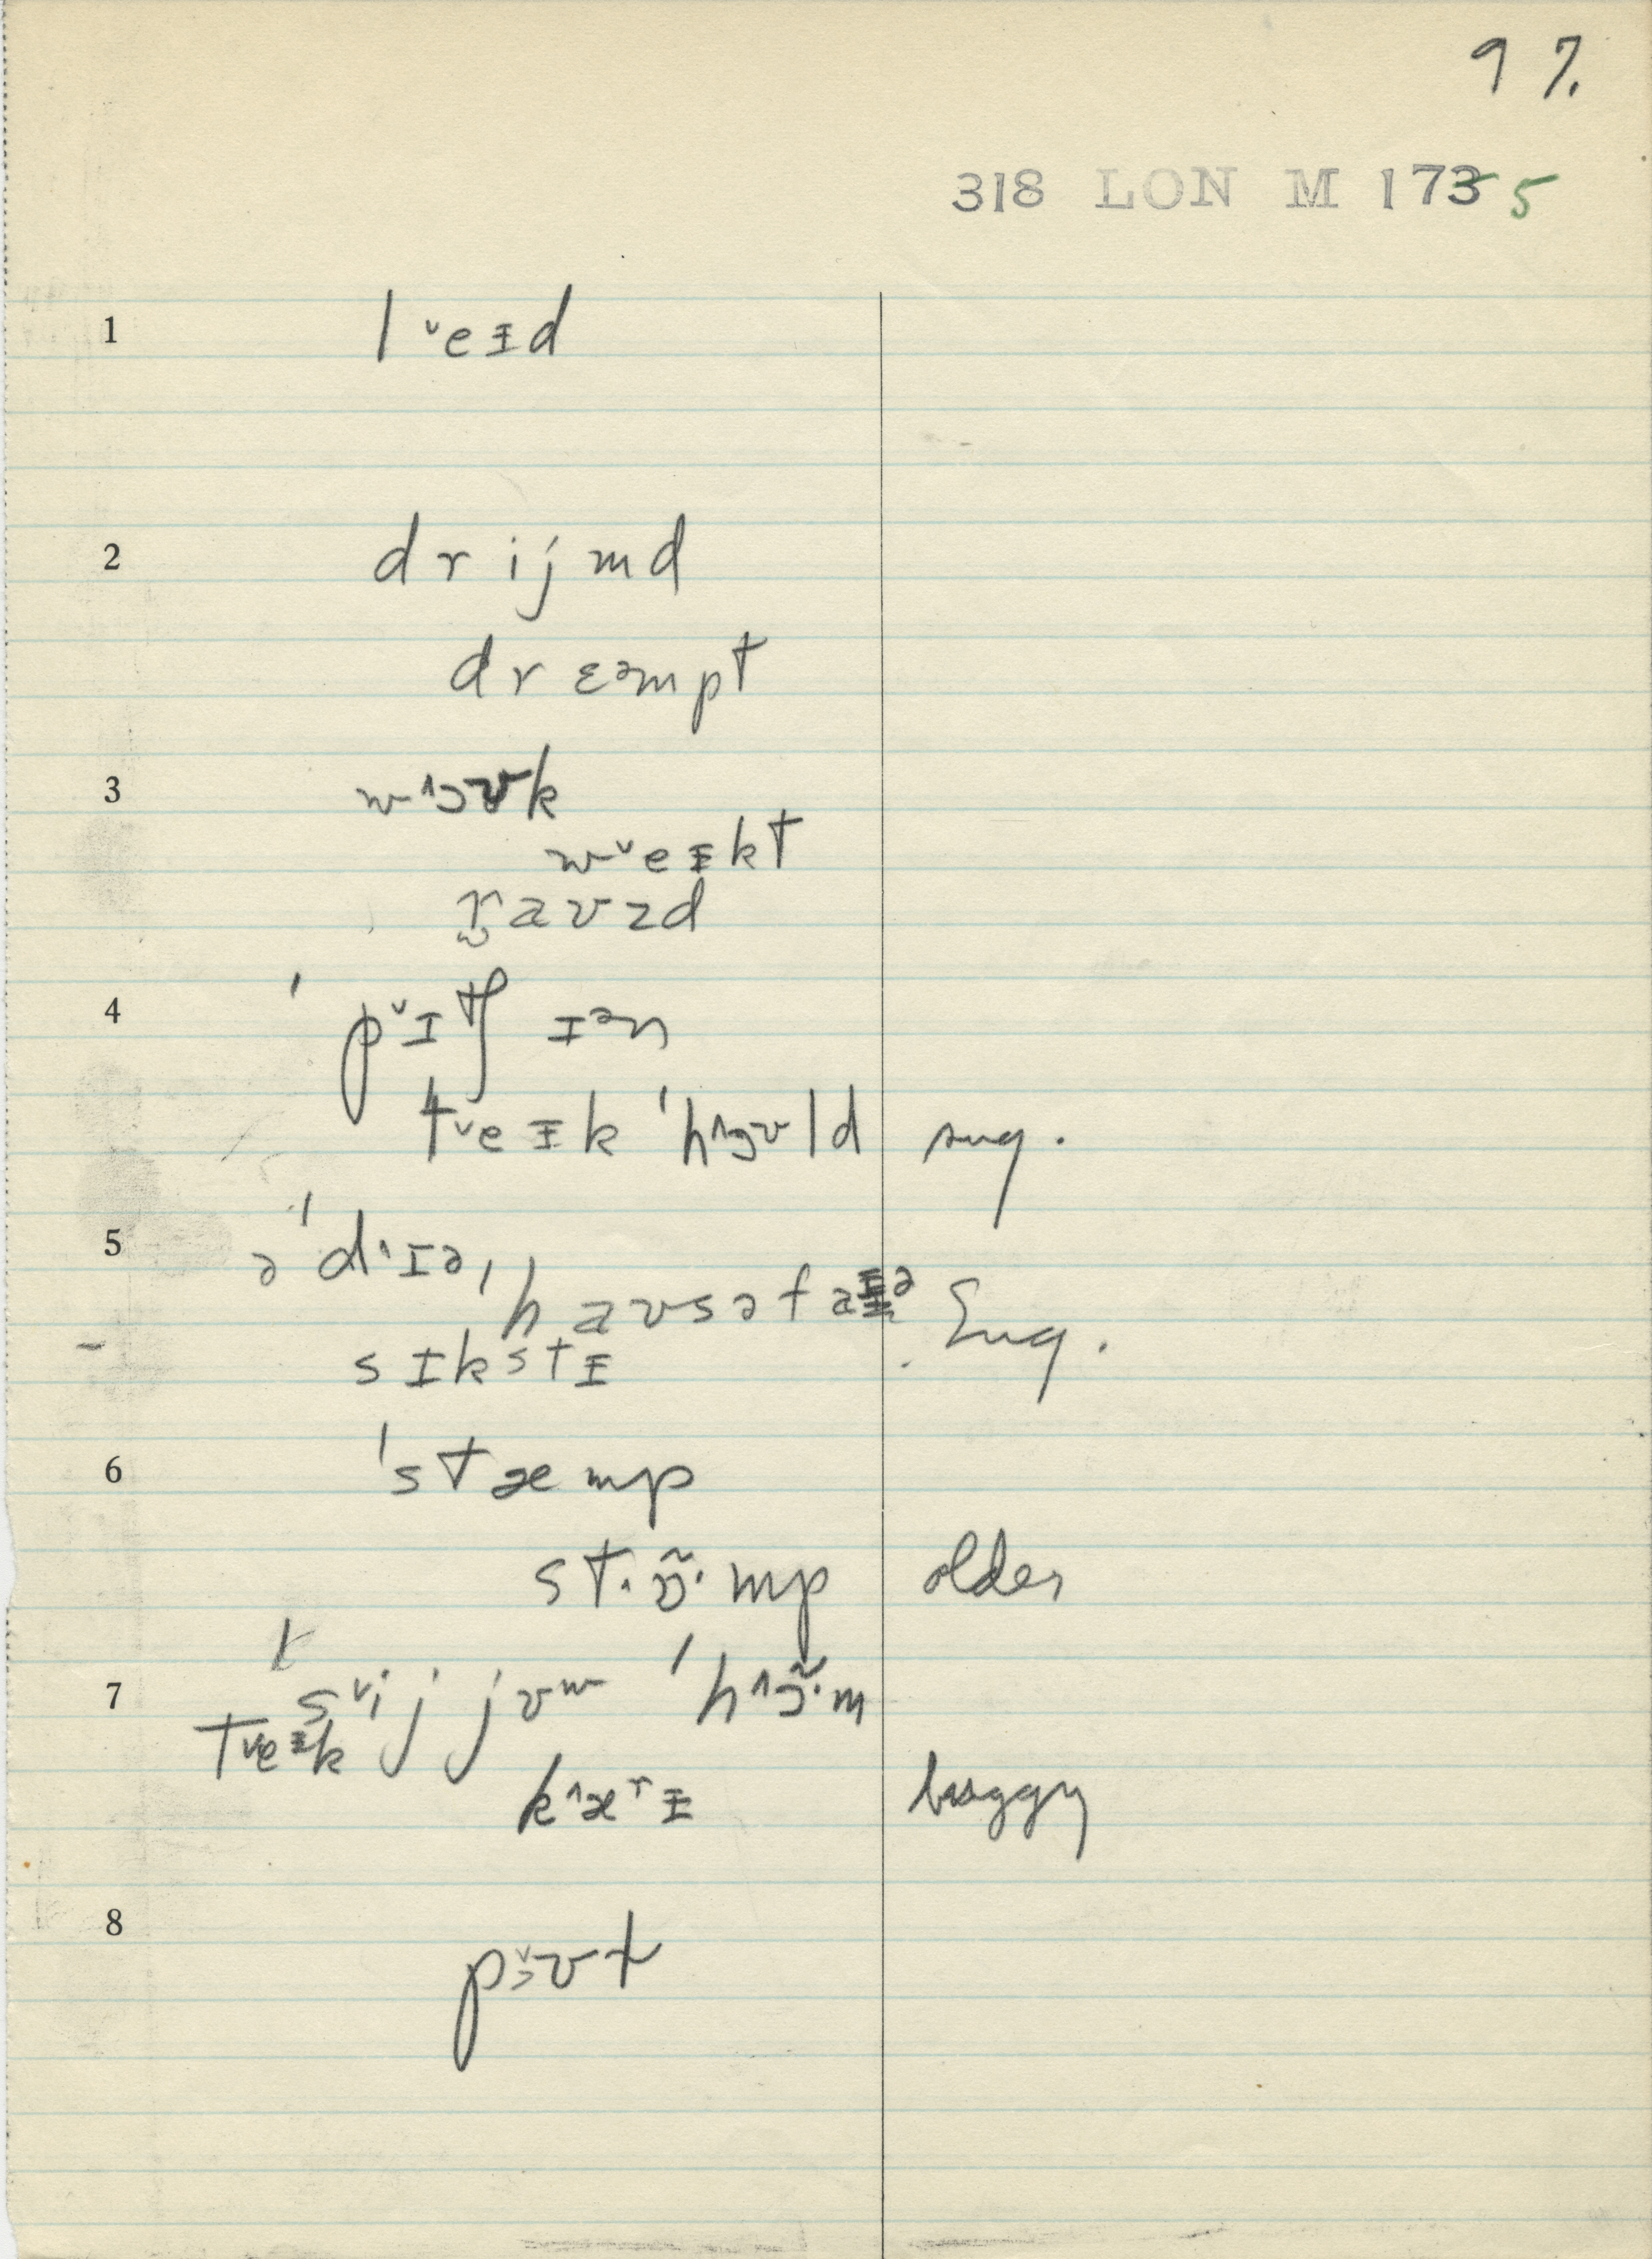 97.
318 LON M 1735
1 l ˅eɪd
2 drijmd
drɛəmpt
3 w˄ɔʊk
w˅eɪkt
raʊzd
4 ˈp˅ɪtʃ ɪən
t˅eɪk ˈh˄ɔʊld sug.
5 əˈd˄ɪə,
haʊsəfaɪə Sug.
sɪkstɪ
6 ˈstæmp
st·ɒ̃·mp older
7 s˅ij jʊw ˈh˄ɔ̃·m
t˅eɪk
k˄ærɪ buggy
8 p˅ɔʊt